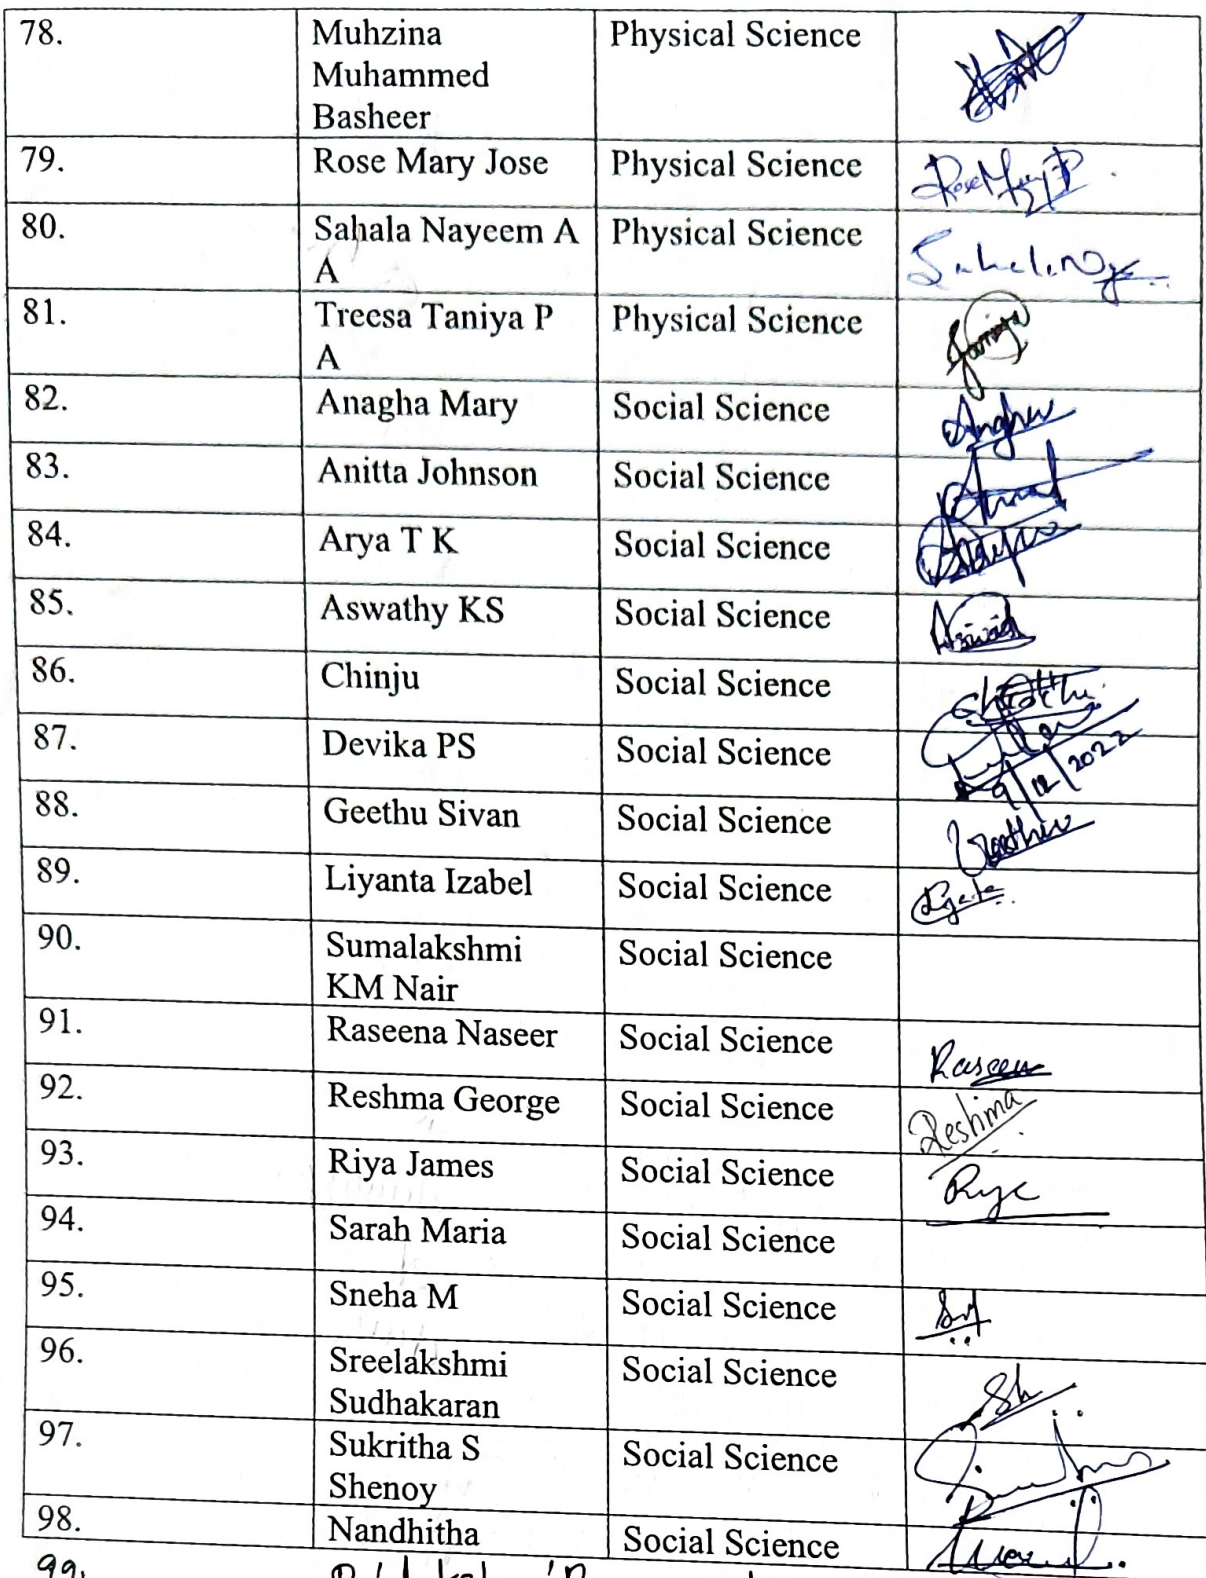 78. Muhzina Physical Science
Muhammed
Basheer
79. Rose Mary Jose Physical Science
80. Sahala Nayeem A Physical Science
A
81. Treesa Taniya P Physical Science
A
82. Anagha Mary Social Science
83. Anitta Johnson Social Science
84. Arya T K Social Science
85. Aswathy KS Social Science
86. Chinju Social Science
87. Devika PS Social Science
9/12/2022
88. Geethu Sivan Social Science
89. Liyanta Izabel Social Science
90. Sumalakshmi Social Science
KM Nair
91. Raseena Naseer Social Science
92. Reshma George Social Science Reshma
93. Riya James Social Science
94. Sarah Maria Social Science
95. Sneha M Social Science
96. Sreelakshmi Social Science
Sudhakaran
97. Sukritha S Social Science
Shenoy
98. Nandhitha Social Science
99.